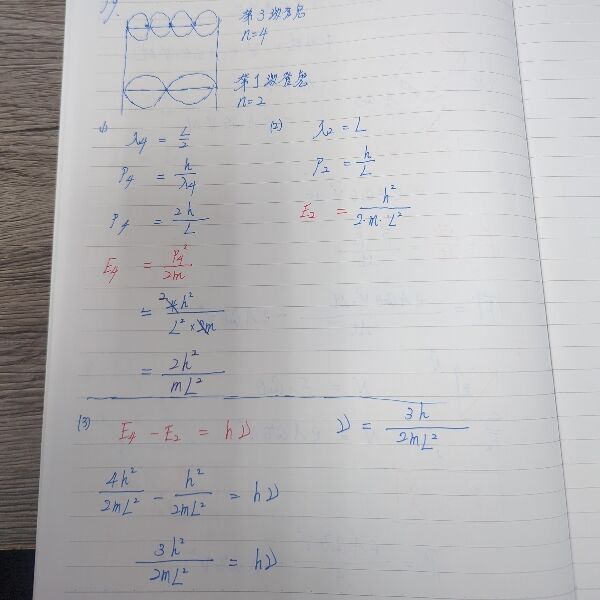 19.
第3激發態
n=4
第1激發態
n=2
(1) λ₄ = L/2
P₄ = h/λ₄
P₄ = 2h/L
E₄ = P₄²/2m
= 4h²/(L² × 2m) 2
= 2h²/mL²
(2) λ₂ = L
P₂ = h/L
E₂ = h²/(2·m·L²)
(3) E₄ - E₂ = hν
4h²/2mL² - h²/2mL² = hν
3h²/2mL² = hν
ν = 3h/2mL²